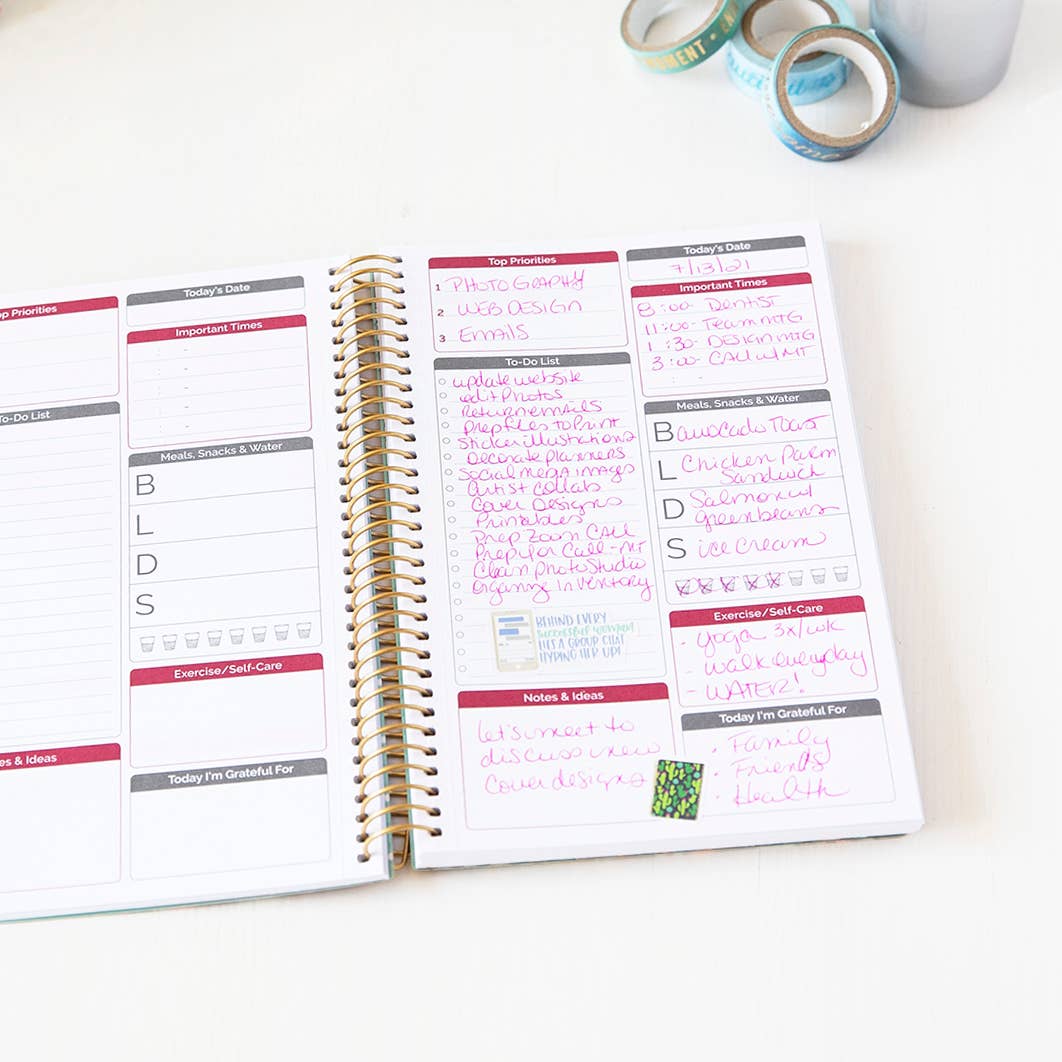 MOMENT •
Top Priorities
To-Do List
Notes & Ideas
Today's Date
Important Times
: -
: -
: -
: -
: -
Meals, Snacks & Water
B
L
D
S
Exercise/Self-Care
Today I'm Grateful For
Top Priorities
1 PHOTOGRAPHY
2 WEB DESIGN
3 EMAILS
To-Do List
update website
edit Photos
Return emails
Prep files to Print
Sticker illustrations
Decorate planners
Social mega images
Artist collab
Cover Designs
Printables
Prep Zoom Call
Prep for Call - MT
Clean Photo Studio
Organize Inventory
BEHIND EVERY
SUCCESSFUL WOMAN
LIES A GROUP CHAT
HYPING HER UP!
Notes & Ideas
Let's meet to
discuss new
cover designs
Today's Date
7/13/21
Important Times
8:00- Dentist
11:00- Team MTG
1:30- DESIGN MTG
3:00- CALL w/ MT
: -
Meals, Snacks & Water
B avocado Toast
L Chicken Parm
Sandwich
D Salmon w/
greenbeans
S ice cream
Exercise/Self-Care
- Yoga 3x/wk
- walk everyday
- WATER!
Today I'm Grateful For
• Family
• Friends
• Health